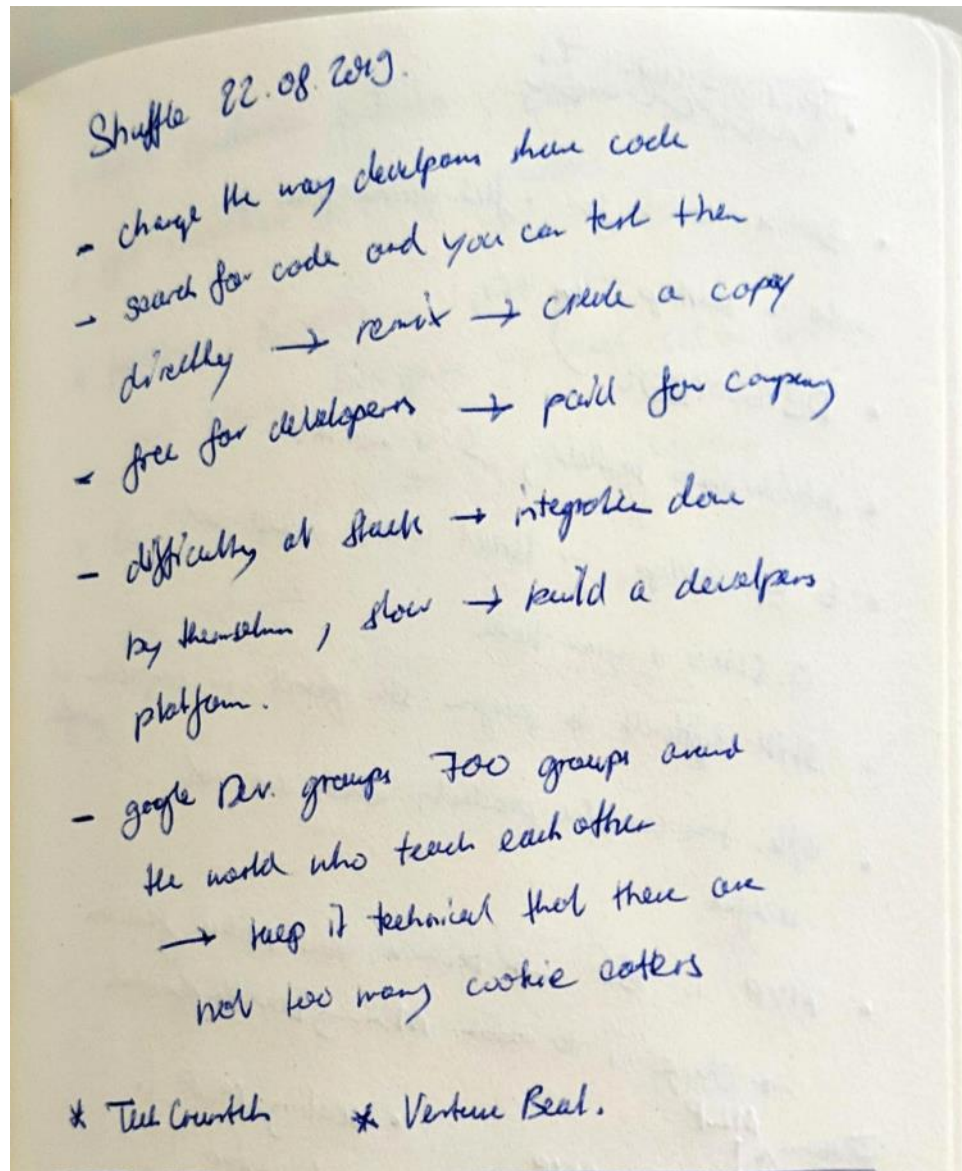 Shuffle 22.08.2019.
- change the way developers share code
- search for code and you can test them
directly → remix → create a copy
- free for developers → paid for company
- difficulty at Slack → integration done
by themselves, slow → build a developers
platform.
- google Dev. groups 700 groups around
the world who teach each other
→ keep it technical that there are
not too many cookie eaters
* Tech Crunch * Venture Beat.